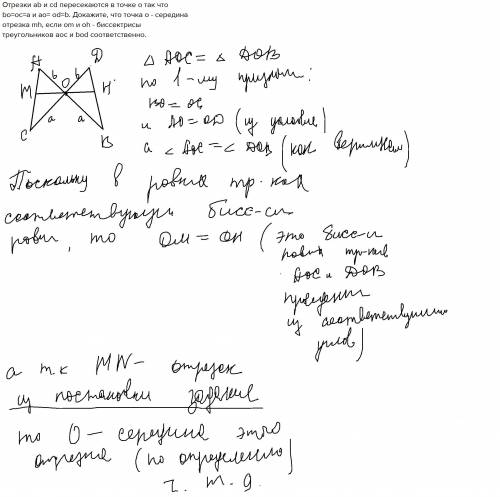 Отрезки ab и cd пересекаются в точке о так что
bo=oc=a и ao= od=b. Докажите, что точка о - середина
отрезка mh, если om и oh - биссектрисы
треугольников аос и bod соответственно.
A D
b b
M O H
a a
C B
△ AOC = △ DOB
по 1-му призн
BO = OC
и AO = OD (из условия)
а ∠ AOC = ∠ DOB (как верт
Поскольку в равных тр-ках
соответствующи бисс-сы
равн, то OM = OH (это бисс-ы
равных тр-ков
AOC и DOB
проведены
из соответствующих
углов)
а т к MN - отрезок
из постановки задания
то O - середина этого
отрезка (по определению)
ч. т. д.